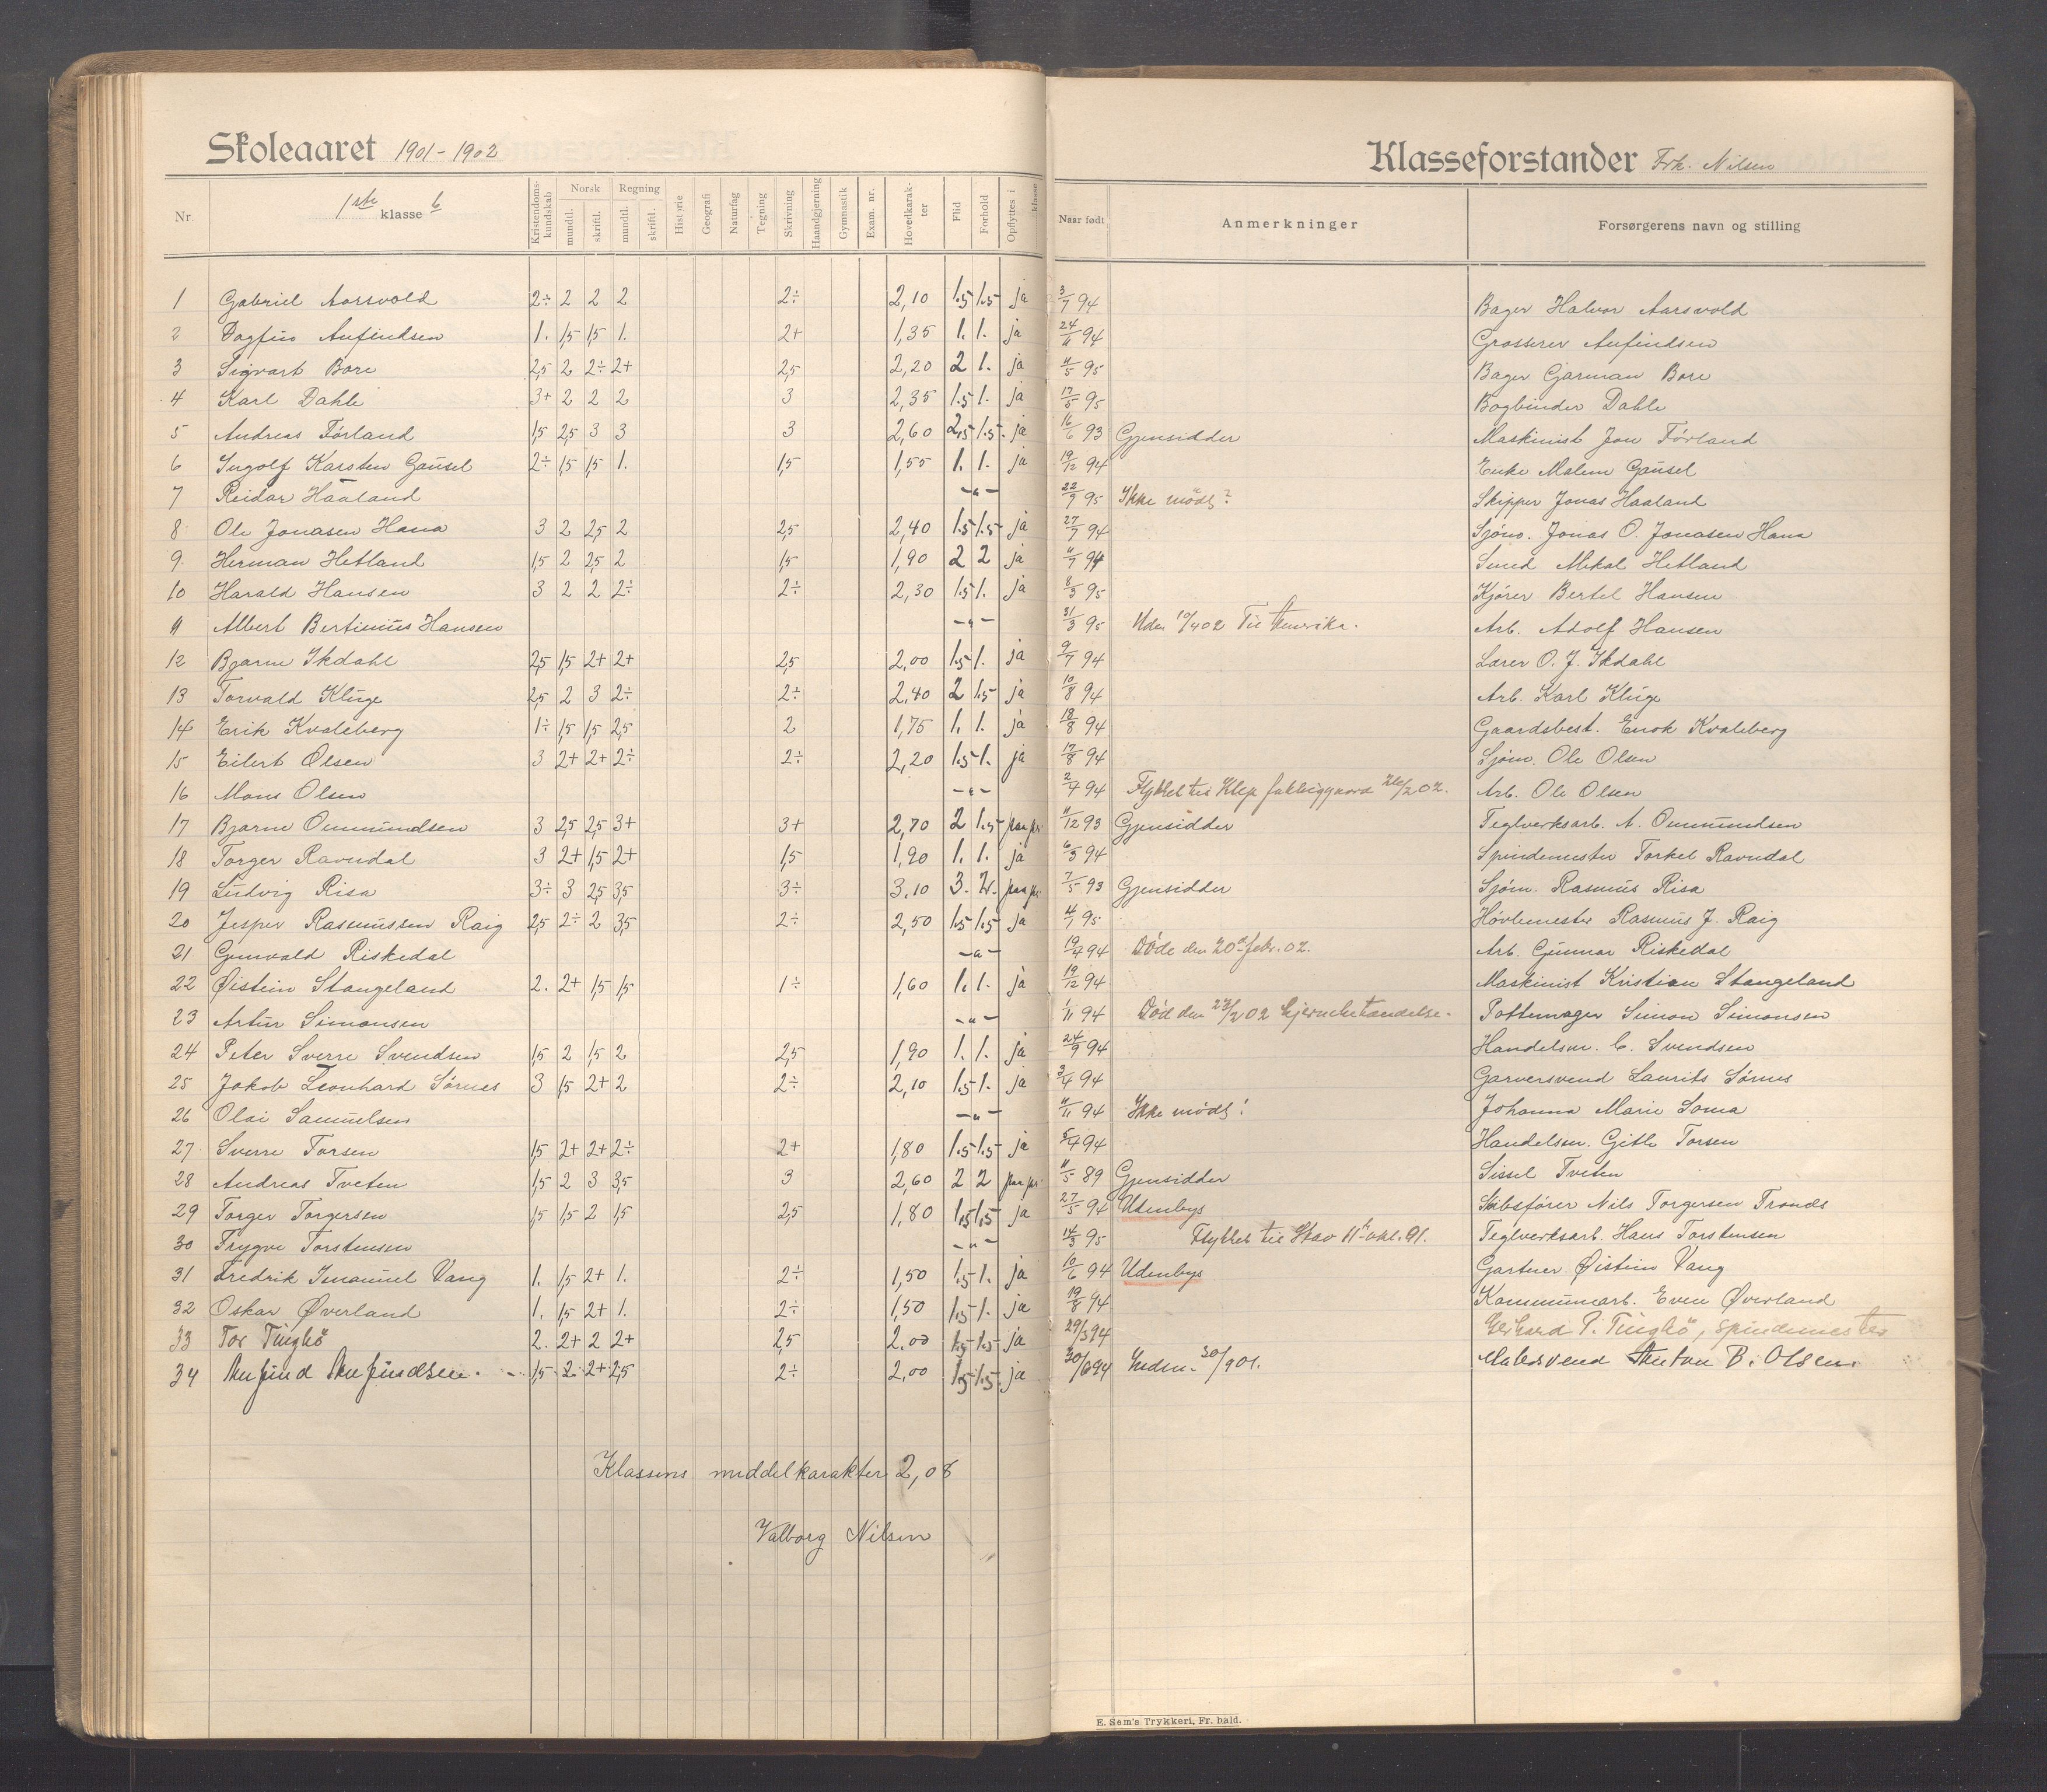 Skoleaaret 1901-1902
Klasseforstander Frk. Nilsen
Nr.
1ste klasse b
Kristendoms-kundskab
Norsk
mundtl.
skriftl.
Regning
mundtl.
skriftl.
Historie
Geografi
Naturfag
Tegning
Skrivning
Haandgjerning
Gymnastik
Exam. nr.
Hovedkarakter
Flid
Forhold
Opflyttes i klasse
Naar født
Anmerkninger
Forsørgerens navn og stilling
1 Gabriel Aarsvold 2÷ 2 2 2 2÷ 2,10 1.5 1.5 ja 3/7 94 Bager Halvor Aarsvold
2 Dagfin Anfindsen 1. 1,5 1,5 1. 2+ 1,35 1. 1. ja 24/11 94 Grosserer Anfindsen
3 Sigvart Bore 2,5 2 2÷ 2+ 2,5 2,20 2 1. ja 11/5 95 Bager Garman Bore
4 Karl Dahle 3+ 2 2 2 3 2,35 1.5 1. ja 17/5 95 Bogbinder Dahle
5 Andreas Førland 1,5 2,5 3 3 3 2,60 2,5 1.5 ja 16/6 93 Gjensidder Maskinist Jon Førland
6 Ingolf Karsten Gausel 2÷ 1,5 1,5 1. 1,5 1,55 1. 1. ja 19/12 94 Enke Malene Gausel
7 Reidar Haaland -"- 22/7 95 Ikke mødt? Skipper Jonas Haaland
8 Ole Jonasen Hana 3 2 2,5 2 2,5 2,40 1.5 1.5 ja 27/7 94 Sjøm. Jonas O. Jonasen Hana
9. Herman Hetland 1,5 2 2,5 2 1,5 1,90 2 2 ja 11/7 94 Smed Mikal Hetland
10 Harald Hansen 3 2 2 2÷ 2÷ 2,30 1.5 1. ja 8/3 95 Kjører Bertel Hansen
11 Albert Bertinius Hansen -"- 31/3 95 Udm 10/4 02 Til Amerika. Arb. Adolf Hansen
12 Bjarne Ikdahl 2,5 1,5 2+ 2+ 2,5 2,00 1.5 1. ja 9/7 94 Lærer O. J. Ikdahl
13 Torvald Kluge 2,5 2 3 2÷ 2÷ 2,40 2 1.5 ja 10/8 94 Arb. Karl Kluge
14 Erik Kvaleberg 1÷ 1,5 1,5 2,5 2 1,75 1. 1. ja 18/8 94 Gaardsbest. Enok Kvaleberg
15 Eilert Olsen 3 2+ 2+ 2÷ 2÷ 2,20 1.5 1. ja 17/8 94 Sjøm. Ole Olsen
16 Mons Olsen -"- 2/4 94 Flyttet til Klep fattiggaard /2 02. Arb. Ole Olsen
17 Bjarne Ommundsen 3 2,5 2,5 3+ 3+ 2,70 2 1.5 paa pr. 11/12 93 Gjensidder Teglverksarb. A. Ommundsen
18 Torger Ravndal 3 2+ 1,5 2+ 1,5 1,90 1. 1. ja 6/3 94 Spindemester Torkel Ravndal
19 Ludvig Risa 3÷ 3 2,5 3,5 3÷ 3.10 3. 2. paa pr. 7/5 93 Gjensidder Sjøm. Rasmus Risa
20 Jesper Rasmussen Raig 2,5 2÷ 2 3,5 2÷ 2,50 1.5 1.5 ja 11/1 95 Høvlemester Rasmus J. Raig
21 Gunvald Riskedal -"- 19/4 94 Døde den 20de febr. 02. Arb. Gunnar Riskedal
22 Øistein Stangeland 2. 2+ 1,5 1,5 1÷ 1,60 1. 1. ja 19/12 94 Maskinist Kristian Stangeland
23 Artur Simonsen -"- 1/11 94 Død den 27/2 02 hjernebetændelse. Pottemager Simon Simonsen
24 Peter Sverre Svendsen 1,5 2 1,5 2 2,5 1,90 1. 1. ja 24/9 94 Handelsm. C. Svendsen
25 Jakob Leonhard Sørnes 3 1,5 2+ 2 2÷ 2,10 1.5 1. ja 3/4 94 Garversvend Laurits Sørnes
26 Olai Samuelsen -"- 11/11 94 Ikke mødt! Johanna Marie Soma
27 Sverre Torsen 1,5 2+ 2+ 2÷ 2+ 1,80 1.5 1.5 ja 5/4 94 Handelsm. Gitle Torsen
28 Andreas Tveten 1,5 2 3 3,5 3 2,60 2 2 paa pr. 11/5 89 Gjensidder Sissel Tveten
29 Torger Torgersen 1,5 1,5 2 1,5 2,5 1,80 1.5 1.5 ja 27/5 94 Udenbys Skibsfører Nils Torgersen Tronds
30 Trygve Torstensen -"- 14/3 95 Flyttet til 11te okt. 01. Teglverksarb. Hans Torstensen
31 Fredrik Imanuel Vang 1. 1,5 2+ 1. 2÷ 1,50 1.5 1. ja 10/6 94 Udenbys Gartner Øistein Vang
32 Oskar Øverland 1. 1,5 2+ 1. 2÷ 1,50 1.5 1. ja 19/8 94 Kommunearb. Even Øverland
33 Tor Tingbø 2. 2+ 2 2+ 2,5 2.00 1.5 1.5 ja 29/3 94 Gerhard P. Tingbø, Spindemester
34 Anfind Anfindsen. 1,5 2. 2+ 2,5 2÷ 2,00 1.5 1.5 ja 30/6 94 Indm. 30/9 01. Malersvend Anton B. Olsen.
Klassens middelkarakter 2,08
Valborg Nilsen
E. Sem's Trykkeri, Fr. hald.